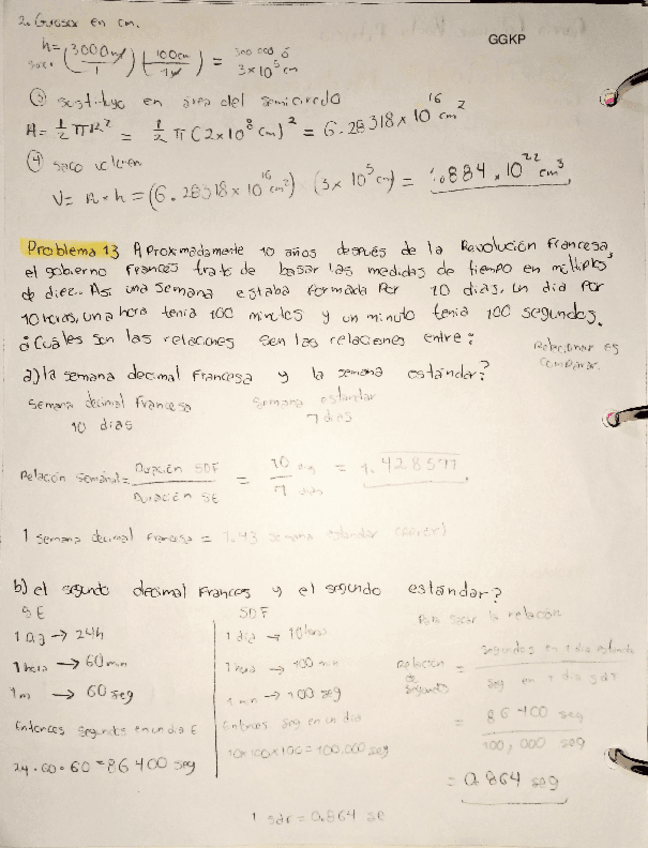 2. Grosor en cm.
GGKP
h = (3000m/1) (100cm/1m) = 300 000 ó 3x10⁵ cm
③ sustituyo en área del semicirculo
A = 1/2 πR² = 1/2 π(2x10⁸ cm)² = 6.28318 x 10¹⁶ cm²
④ saco volumen
V = A x h = (6.28318 x 10¹⁶ cm²) (3x 10⁵ cm) = 1.884 x 10²² cm³
Problema 13 Aproxmadamente 10 años después de la Revolución francesa,
el gobierno francés trato de basar las medidas de tiempo en múltiplos
de diez. Asi una semana estaba formada por 10 dias, un dia por
10 horas, una hora tenia 100 minutos y un minuto tenia 100 segundos.
¿Cuáles son las relaciones sen las relaciones entre:
Relacionar es comparar.
a) la semana decimal francesa y la semana estándar?
Semana decimal francesa
semana estandar
10 dias
7 dias
Relación semanal = Duración SDF / Duración SE = 10 / 7 = 1.428577
1 semana decimal francesa = 1.43 semana estandar
b) el segundo decimal Frances y el segundo estándar?
SE
SDF
Para sacar la relación
1 dia → 24h
1 dia → 10 horas
1 hora → 60 min
1 hora → 100 min
1 m → 60 seg
1 min → 100 seg
Entonces segundos en un dia E
Entonces seg en un dia
24·60·60 = 86 400 seg
10x100x100 = 100,000 seg
Relacion de segundo = segundos en 1 dia estandar / seg en 1 dia sdf
= 86 400 seg / 100,000 seg
= 0.864 seg
1 sdf = 0.864 se